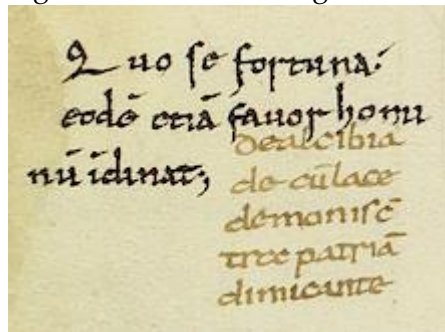 Quo se fortuna:
eodē etiā favor homi
nū īclinat;
de alcibia
de cū lace
demonisc̄
tra patriā
dimicante